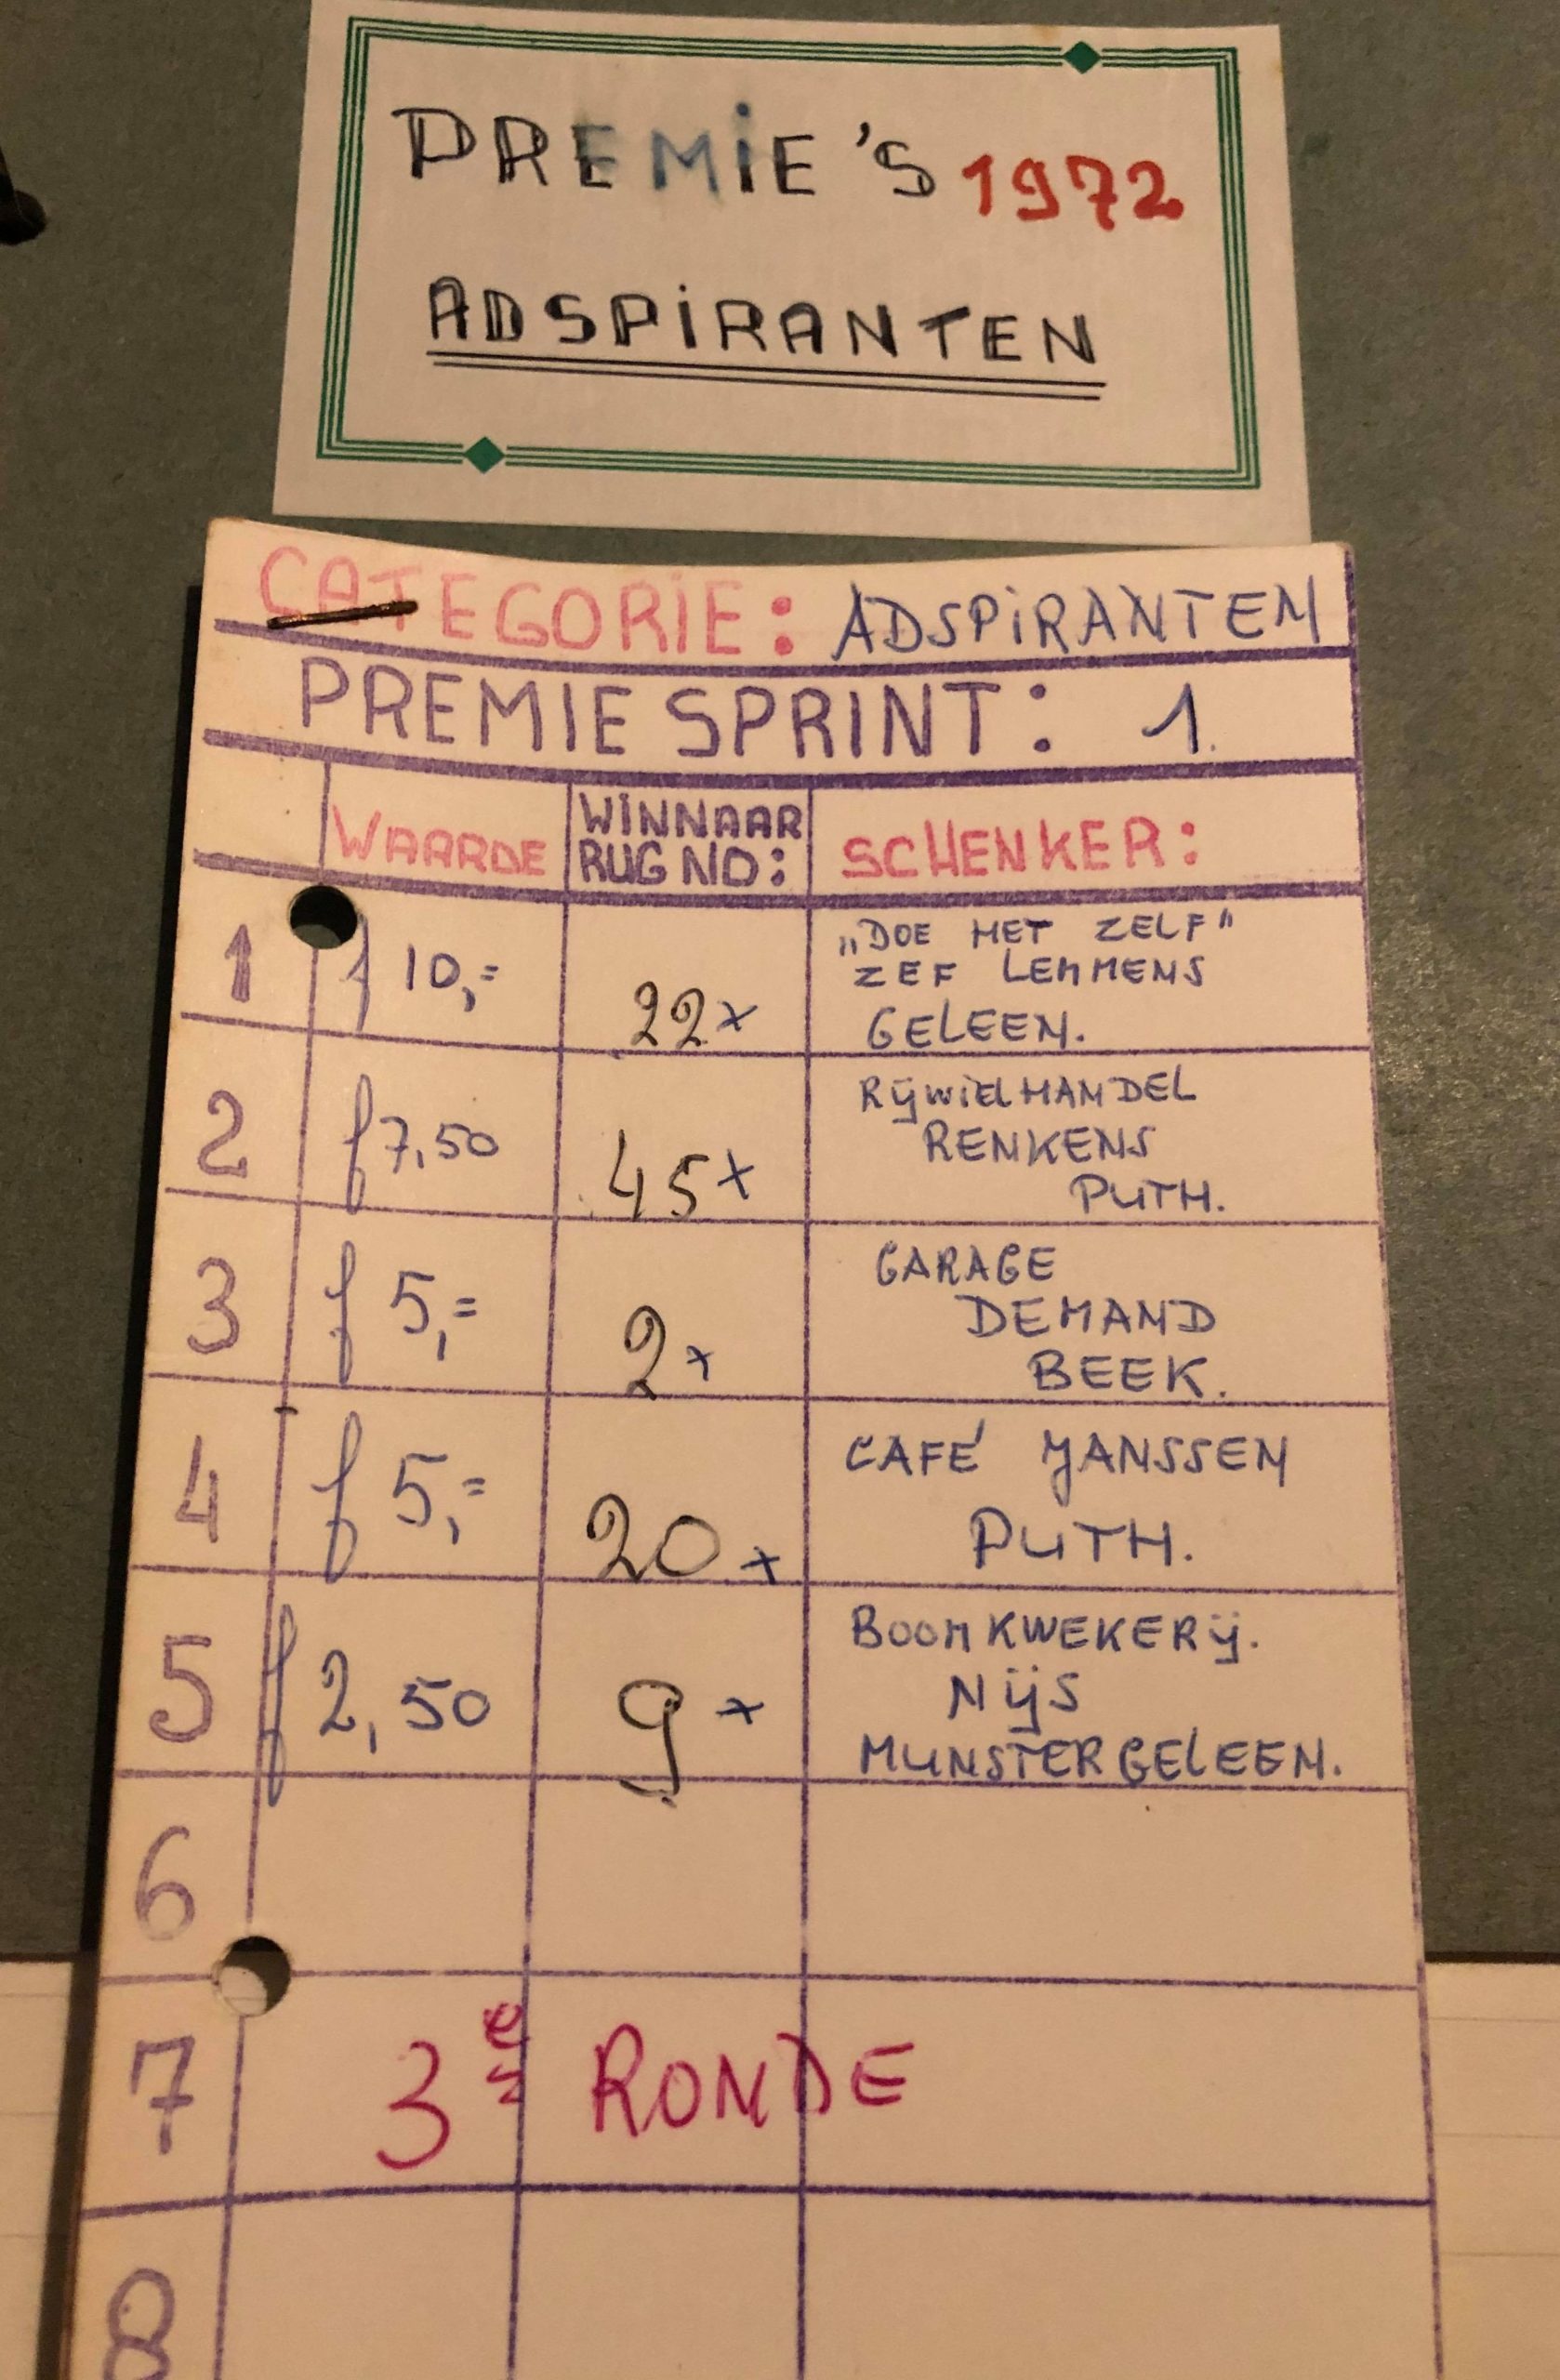 PREMIE'S 1972
ADSPIRANTEN
CATEGORIE: ADSPIRANTEN
PREMIE SPRINT: 1.
WAARDE WINNAAR RUG NO: SCHENKER:
1 f 10,= 22x „DOE HET ZELF"
ZEF LEMMENS
GELEEN.
2 f 7,50 45x RijwielHANDEL
RENKENS
PUTH.
3 f 5,= 2x GARAGE
DEMAND
BEEK.
4 f 5,= 20x CAFÉ JANSSEN
PUTH.
5 f 2,50 9x BOOMKWEKERij.
Nijs
MUNSTERGELEEN.
6
7 3e RONDE
8